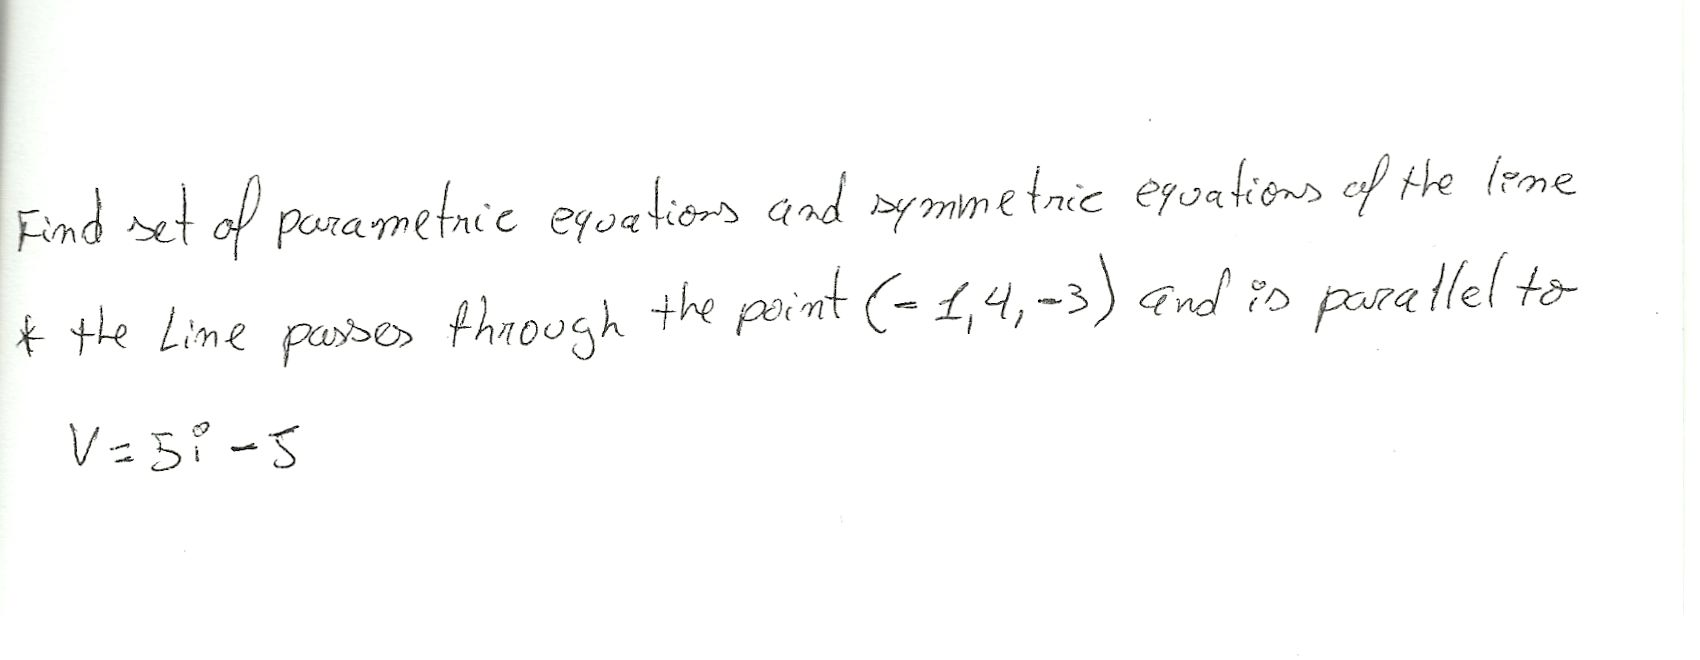 Find set of parametric equations and symmetric equations of the line
* the Line passes through the point (-1,4,-3) and is parallel to
V=5i-J